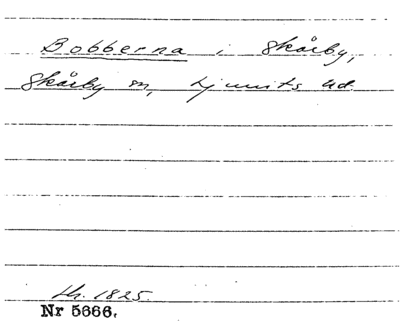 Bobberna i Skårby,
Skårby sn, Ljunits hd.
th. 1825.
Nr 5666.